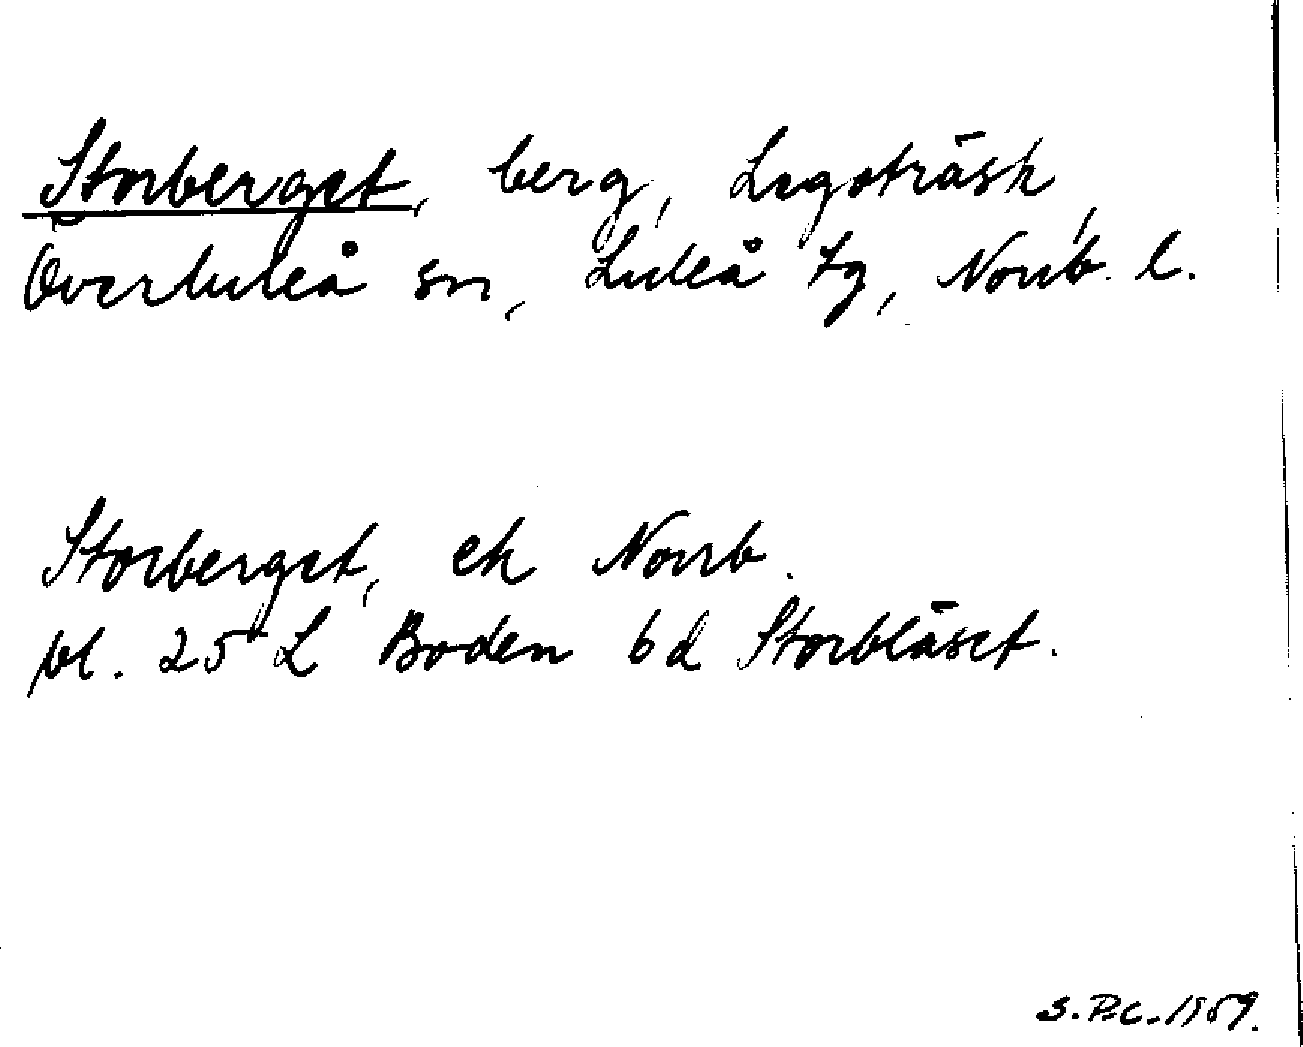 Storberget, berg, Lagoträsk,
Överluleå sn, Luleå tg, Norrb. l.
Storberget, ek Norrb.
bl. 25 L Boden 6 d Storblåset.
S.P.C. 1959.